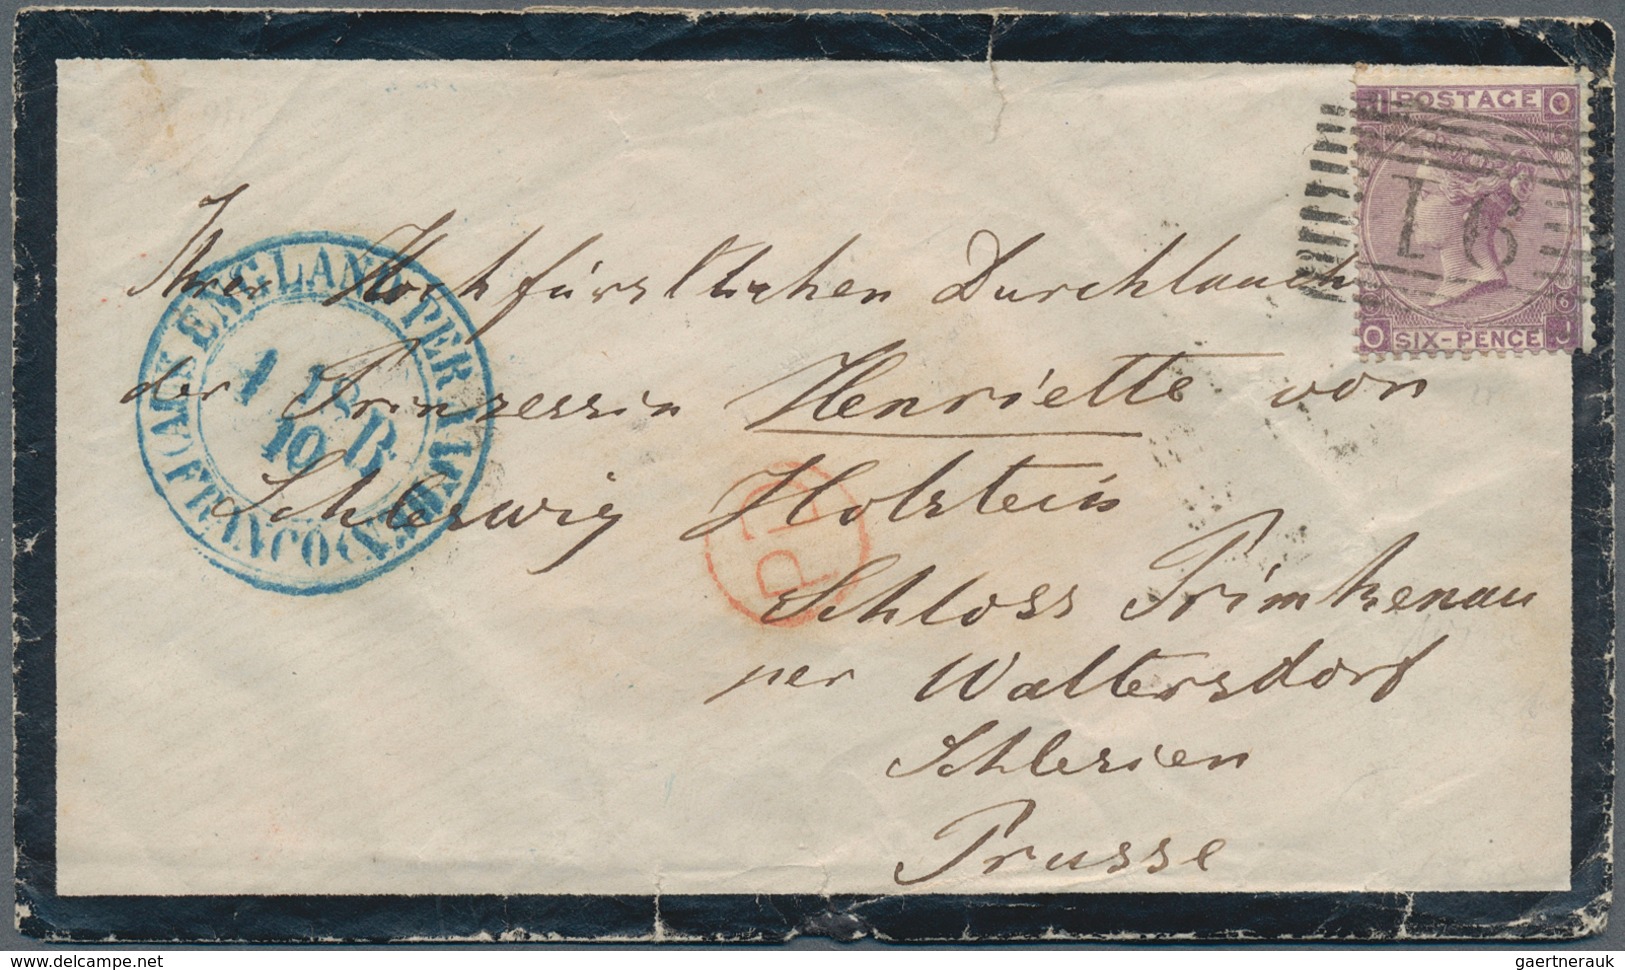 POSTAGE
SIX-PENCE
O
O
J
6
PD
ENGLAND PER AACHEN
FRANCO
10
Ihrer Hochfürstlichen Durchlaucht
der Prinzessin Henriette von
Schleswig Holstein
Schloss Primkenau
per Waltersdorf
Schlesien
Prusse
www.delcampe.net
gaertnerauk